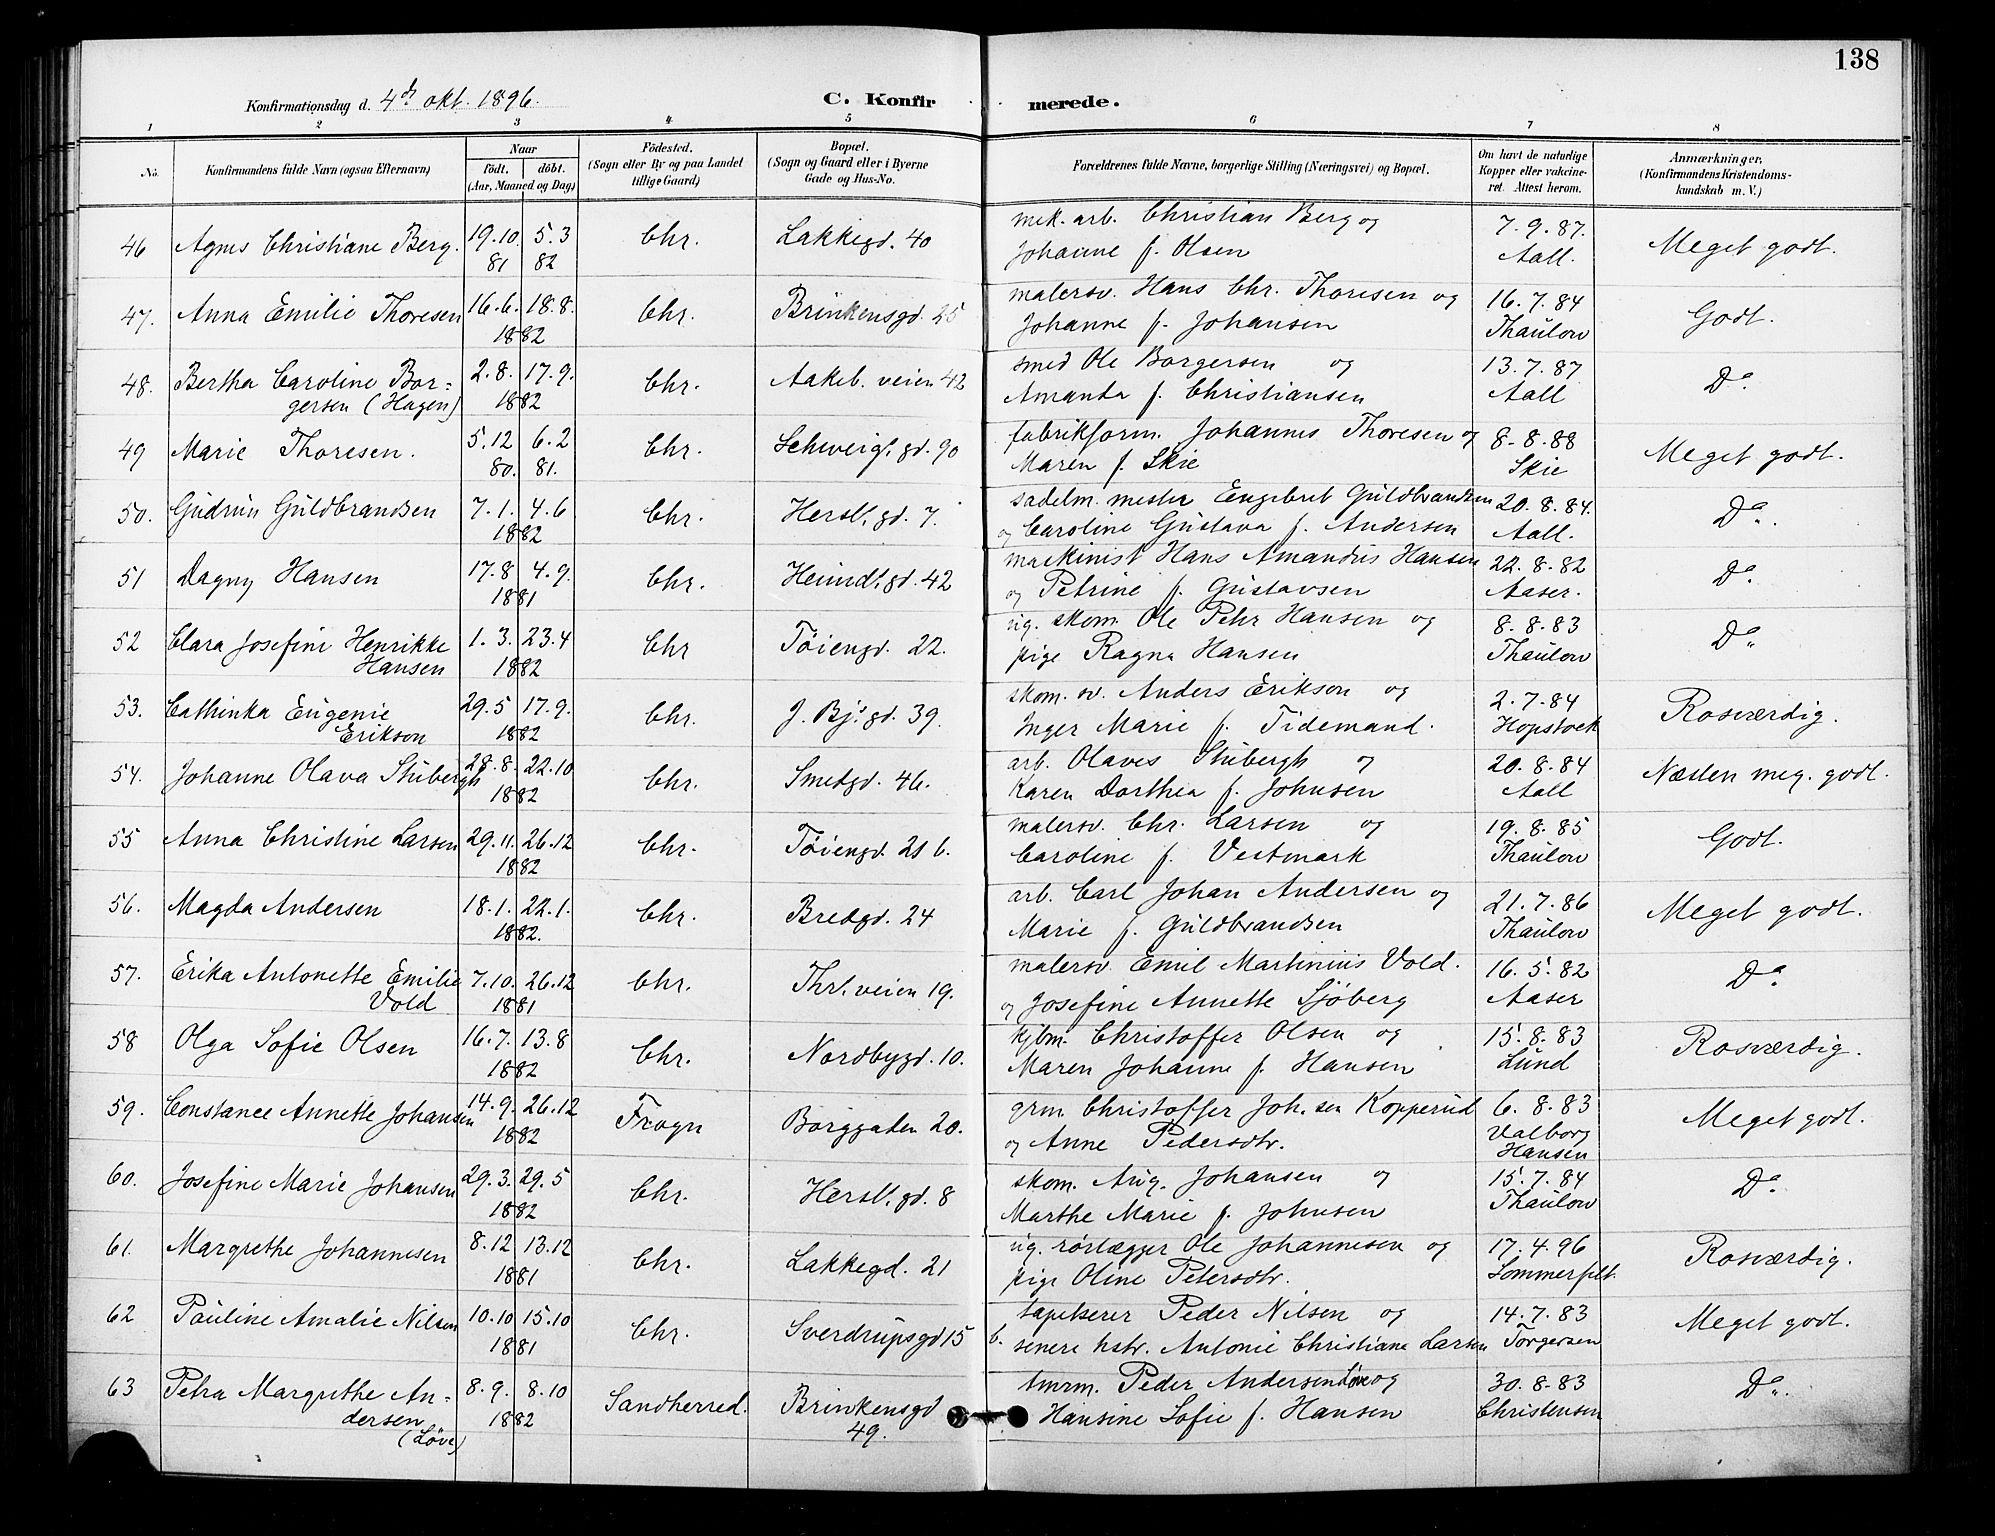 138
Konfirmationsdag d. 4de okt. 1896. C. Konfirmerede.
1 2 3 4 5 6 7 8
No. Konfirmandens fulde Navn (ogsaa Efternavn) Naar født. døbt. (Aar, Maaned og Dag) Fødested. (Sogn eller By og paa Landet tillige Gaard) Bopæl. (Sogn og Gaard eller i Byerne Gade og Hus-No. Forældrenes fulde Navne, borgerlige Stilling (Næringsvei) og Bopæl. Om havt de naturlige Kopper eller vakcineret. Attest herom. Anmærkninger. (Konfirmandens Kristendomskundskab m. V.)
46 Agnes Christiane Berg. 19.10. 81 5.3 82 Chr. Lakkegd. 40 mek. arb. Christian Berg og
Johanne f. Olsen 7.9.87. Aall. Meget godt.
47. Anna Emilie Thoresen 16.6. 18.8. 1882 Chr. Brinkensgd. 25 malersv. Hans Chr. Thoresen og
Johanne f. Johansen 16.7.84 Thaulow Godt.
48. Bertha Caroline Bor-
gersen (Hagen) 2.8. 17.9. 1882 Chr. Aakeb. veien 42 smed Ole Borgersen og
Amanda f. Christiansen 13.7.87 Aall Do.
49 Marie Thoresen. 5.12 80. 6.2 81. Chr. Schweigs. gd. 90 fabrikform. Johannes Thoresen og
Maren f. Skie 8.8.88 Skie Meget godt.
50. Gudrun Guldbrandsen 7.1. 4.6 1882 Chr. Hersl. gd. 7. sadelm. mester Engebret Guldbrandsen
og Caroline Gustava f. Andersen 20.8.84. Aall. Do.
51 Dagny Hansen 17.8 4.9. 1881 Chr. Heimd. gd. 42 maskinist Hans Amandus Hansen
og Petrine f. Gustavsen 22.8.82 Aaser. Do.
52 Clara Josefine Henrikke
Hansen 1.3. 23.4 1882 Chr Tøiengd. 22. ug. skom. Ole Pehr Hansen og
pige Ragna Hansen 8.8.83 Thaulow Do.
53. Cathinka Eugenie
Erikson 29.5 17.9. 1882 Chr. J. Bj.s gd. 39. skom. sv. Anders Erikson og
Inger Marie f. Tidemand. 2.7.84 Hopstock Rosværdig.
54. Johanne Olava Stubergh 28.8. 22.10 1882 Chr. Smedgd. 46. arb. Olaves Stubergh og
Karen Dorthea f. Johnsen 20.8.84 Aall Næsten meg. godt.
55 Anna Christine Larsen 29.11. 26.12 1882 Chr. Tøiengd. 21 b. malersv. Chr. Larsen og
Caroline f. Vestmark 19.8.85 Thaulow Godt.
56. Magda Andersen 18.1. 22.1. 1882. Chr. Bredgd. 24 arb. Carl Johan Andersen og
Marie f. Guldbrandsen 21.7.86 Thaulow Meget godt.
57. Erika Antonette Emilie
Vold 7.10. 26.12 1881 Chr. Thrl. veien 19. malersv. Emil Martinius Vold.
og Josefine Annette Sjøberg 16.5.82 Aaser Do.
58 Olga Sofie Olsen 16.7. 13.8 1882 Chr. Nordbygd. 10. kjbm. Christoffer Olsen og
Maren Johanne f. Hansen 15.8.83 Lund Rosværdig.
59. Constance Annette Johansen 14.9. 26.12 1882 Frogn Borggaden 20. grm. Christoffer Joh.sen Kopperud
og Anne Pedersdtr. 6.8.83 Valborg Hansen Meget godt.
60. Josefine Marie Johansen 29.3. 29.5 1882 Chr. Hersl. gd. 8 skom. Aug. Johansen og
Marthe Marie f. Johnsen 15.7.84 Thaulow Do.
61. Margrethe Johannesen 8.12 13.12 1881 Chr. Lakkegd. 21 ug. rørlægger Ole Johannesen og
pige Oline Petersdtr. 17.4.96 Sommerfelt Rosværdig.
62 Pauline Amalie Nilsen 10.10 15.10 1881 Chr. Sverdrupsgd 15 b. tapetserer Peder Nilsen og
senere hstr. Antonie Christiane Larsen 14.7.83 Torgersen Meget godt.
63 Petra Margrethe An-
dersen
(Løve) 8.9. 8.10 1882 Sandherred. Brinkensgd
49. tmrm. Peder Andersen Løve og
Hansine Sofie f. Hansen 30.8.83 Christensen Do.